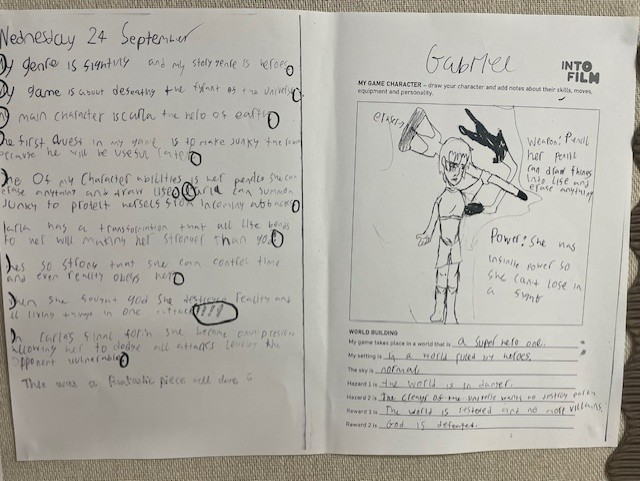 Wednesday 24 September
My genre is fighting and my story genre is heroes.
My game is about defeating the tyrant of the universe.
My main character is carla the hero of earth.
The first Quest in my game is to make Junky the
because he will be useful later.
One Of my Character abilities is her pencil. She can
erase anything and draw life. Carla can summon
Junky to protect herself from incoming attacks.
Carla has a transformation that all life bends
to her will making her stronger than god.
Shes so strong that she can control time
and even reality obeys her.
When she fought god she destroyed reality and
all living things in one attack!!!!
In Carla's final form she became
allowing her to dodge all attacks leaving the
opponent vulnerable.
This was a fantastic piece well done
Gabriel
INTO
FILM
MY GAME CHARACTER – draw your character and add notes about their skills, moves,
equipment and personality.
eraser
Weapon: Pencil
her pencil
can draw things
into life and
erase anything
Power: She has
infinite power so
she cant lose in
a fight
WORLD BUILDING
My game takes place in a world that is a super hero one.
My setting is in a world ruled by heroes.
The sky is normal
Hazard 1 is the world is in danger.
Hazard 2 is The of the universe wants to destroy
Reward 1 is The world is restored and no more villains.
Reward 2 is God is defeated.